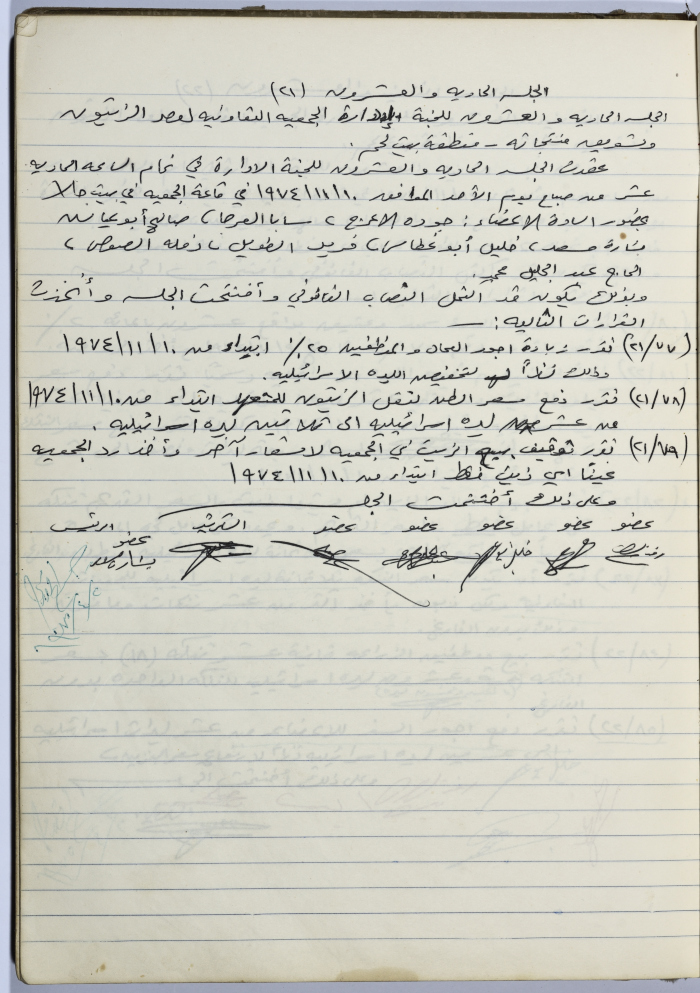 الجلسه الحاديه والعشرون (٢١)
الجلسه الحاديه والعشرون للجنة الادارة الجمعيه التعاونيه لعصر الزيتون
وتسويق منتجاته - منطقة بيت لحم .
عقدت الجلسه الحاديه والعشرون للجنة الادارة في تمام الساعه الحاديه
عشر من صباح يوم الأحد الموافق ١٩٧٤/١١/١٠ في قاعة الجمعيه في بيت جالا
بحضور السادة الاعضاء : جوده الاعرج ، سابا العرجا ، صالح أبو عياش
بشارة مسعد ، خليل أبو غطاس ، فريد الطويل ، نخله الصوص ،
الحاج عبد الجليل .
وبذلك تكون قد اكتمل النصاب القانوني وأفتتحت الجلسه وأتخذت
القرارات التاليه : —
(٢١/٧٧) تقرر زيادة اجور العمال والموظفين ٢٥٪ ابتداء من ١٩٧٤/١١/١٠
وذلك نظراً لتخفيض الليره الاسرائيليه .
(٢١/٧٨) تقرر رفع سعر الطن لنقل الزيتون للمتعهد ابتداء من ١٩٧٤/١١/١٠
من عشر ليره اسرائيليه الى ثلاثين ليره اسرائيليه .
(٢١/٧٩) تقرر توقيف بيع الزيت في الجمعيه لاشعار آخر وأخذ رد الجمعيه
عيناً اي زيت فقط ابتداء من ١٩٧٤/١١/١٠
وعلى ذلك أختتمت الجلسه
عضو عضو عضو عضو عضو امين السر الرئيس
عضو
بشاره مسعد